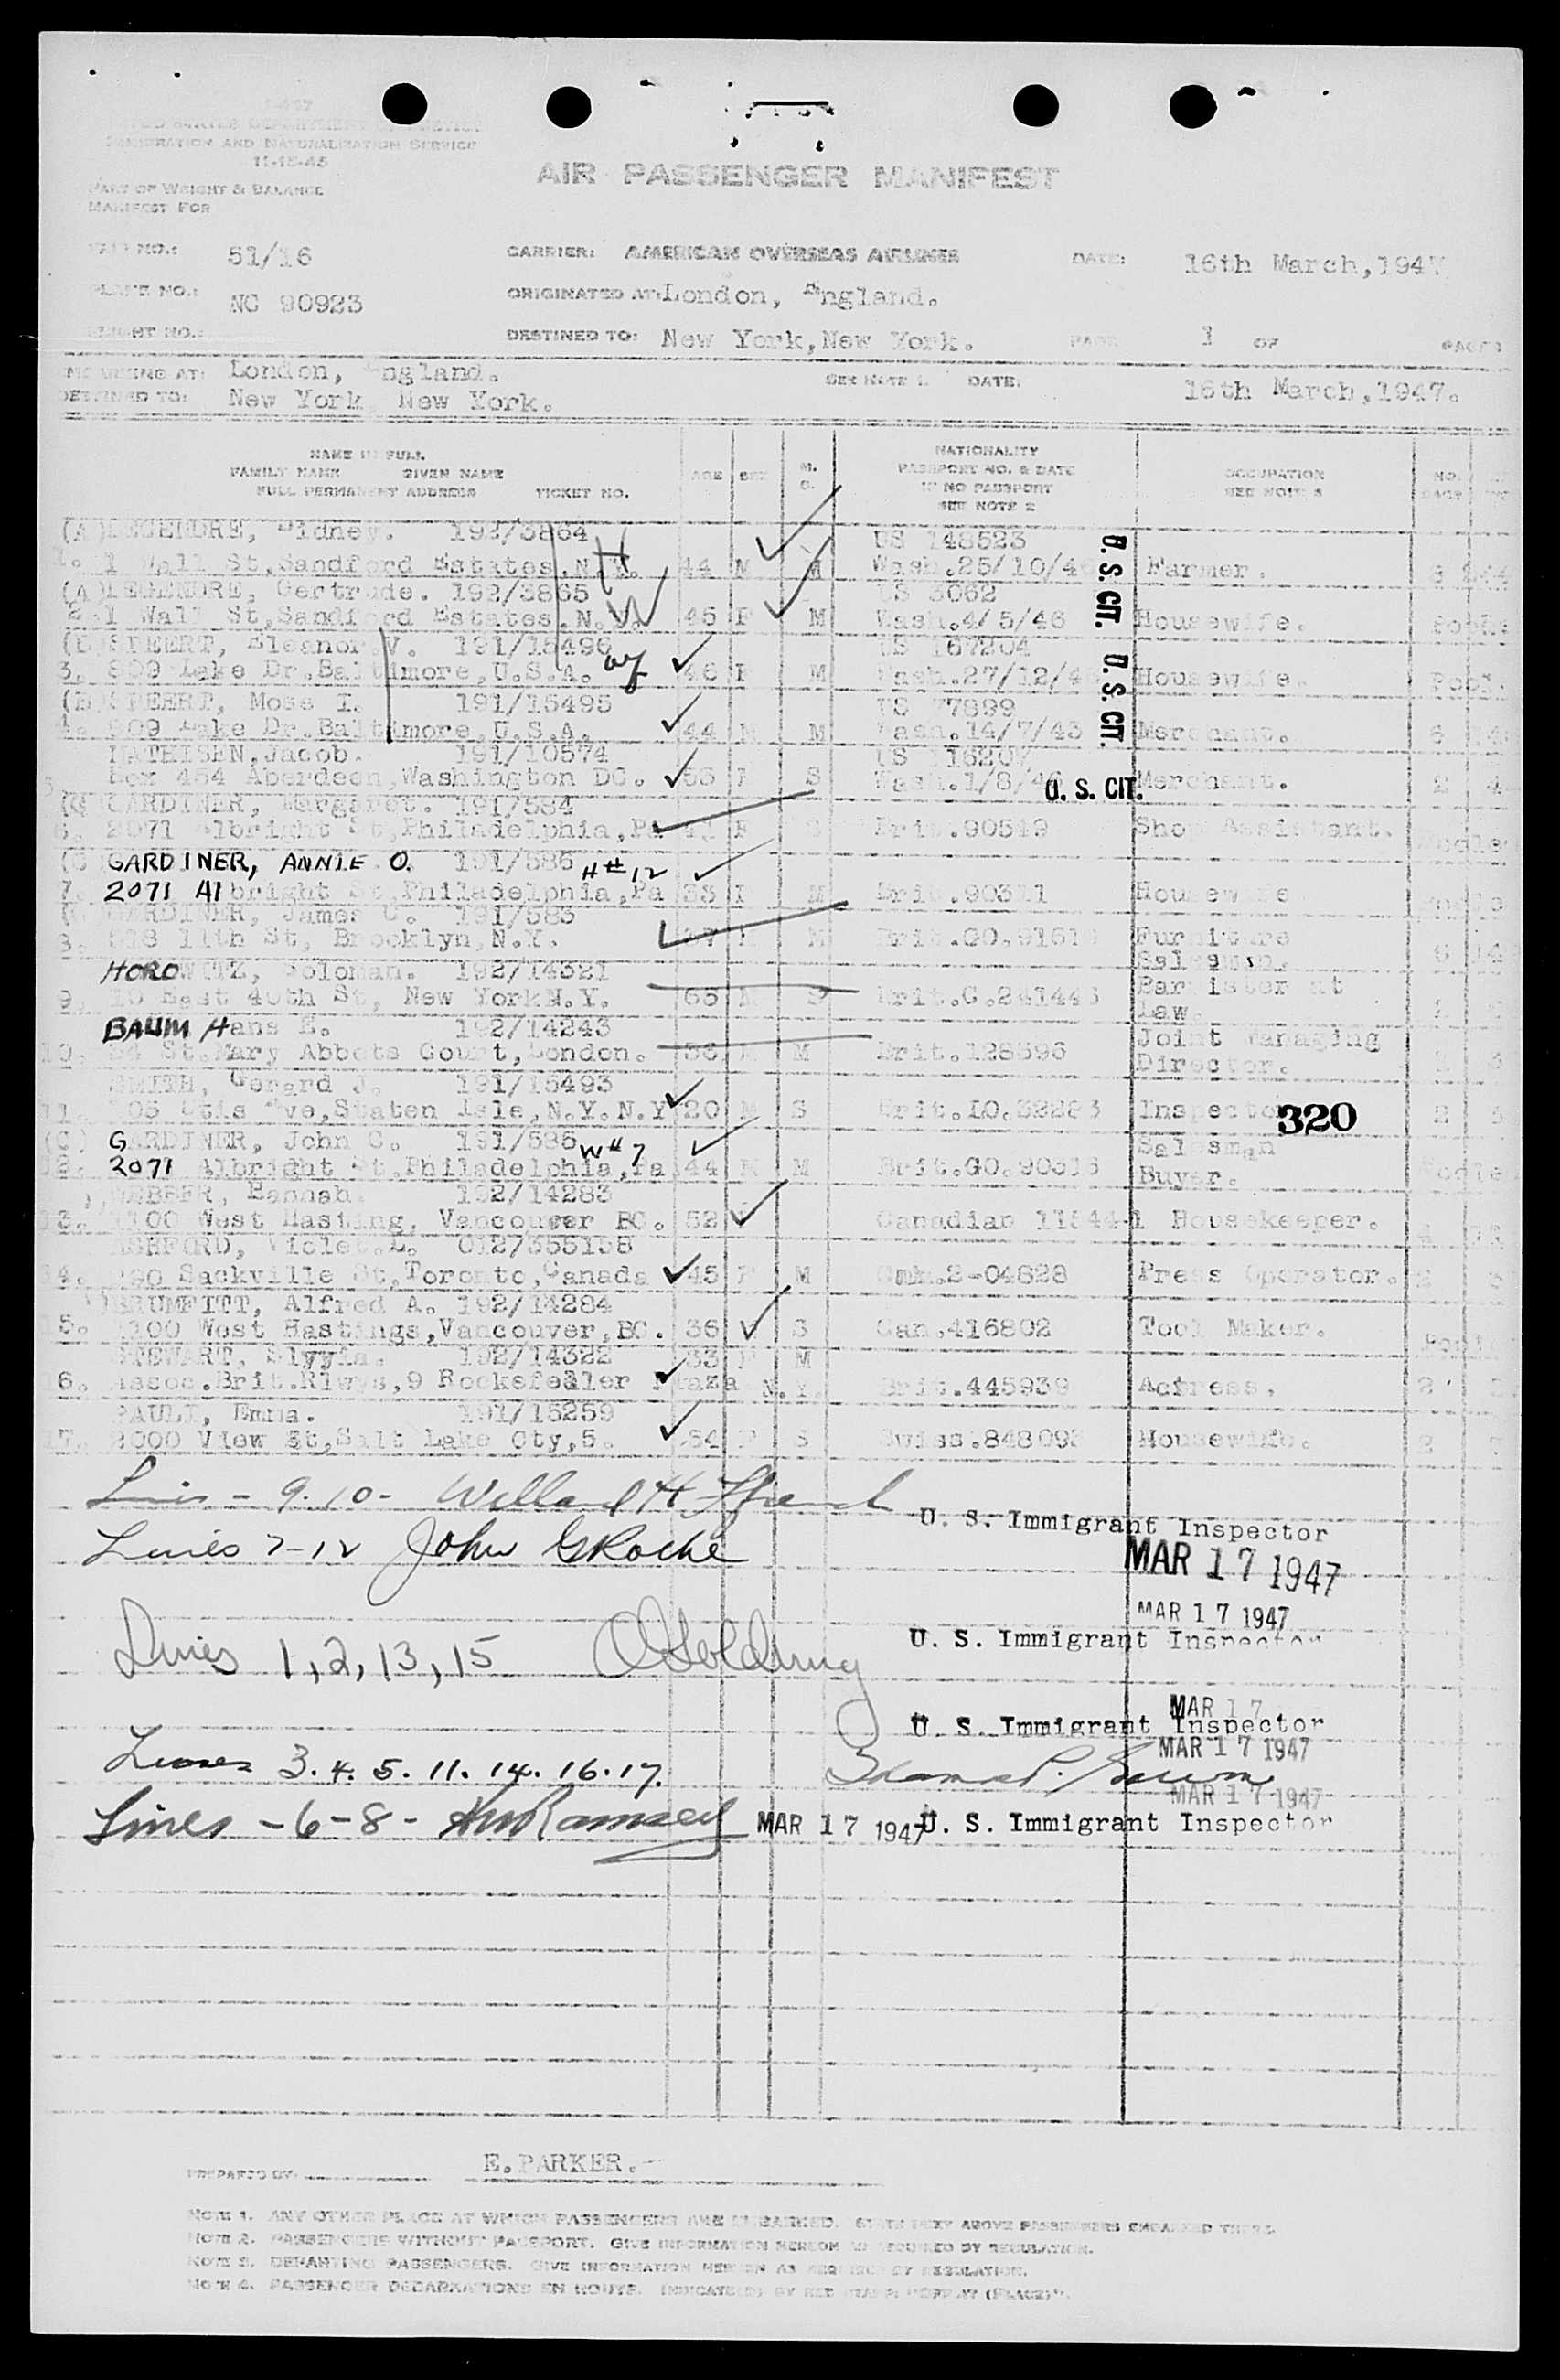 IMMIGRATION AND NATURALIZATION SERVICE
11-15-45
PART OF WEIGHT & BALANCE
MANIFEST FOR
AIR PASSENGER MANIFEST
51/16
CARRIER: AMERICAN OVERSEAS AIRLINES
DATE: 16th March,1947
PLANE NO.: NC 90923
ORIGINATED AT: London, England.
FLIGHT NO.:
DESTINED TO: New York, New York.
PAGE 1 OF PAGES
London, England.
SEE NOTE 1. DATE: 16th March,1947.
DESTINED TO: New York New York.
NAME IN FULL
FAMILY NAME GIVEN NAME
FULL PERMANENT ADDRESS TICKET NO.
AGE SEX M. S.
NATIONALITY
PASSPORT NO. & DATE
IF NO PASSPORT
SEE NOTE 2
OCCUPATION
SEE NOTE 3
(A) LEGENDRE, Sidney. 192/3864 US 148523
1. 1 Wall St,Sandford Estates,N.Y. H 44 M M Wash.25/10/46 Farmer.
(A) LEGENDRE, Gertrude. 192/3865 US 3062
2. 1 Wall St,Sandford Estates.N.Y. W 45 F M Wash.4/5/46 Housewife.
U.S. CIT.
(B) SPEERT, Eleanor V. 191/15496 US 167204
3. 809 Lake Dr.Baltimore,U.S.A. 46 F M Wash.27/12/4 Housewife.
(B) SPEERT, Mose I. 191/15495 US 77899
4. 809 Lake Dr.Baltimore,U.S.A. 44 M M Wash.14/7/43 Merchant.
U.S. CIT.
MATHISEN,Jacob. 191/10574 US 116207
Box 454 Aberdeen,Washington DC. 53 S Wash.1/8/46 U. S. CIT. Merchant. 2
GARDINER, Margaret. 191/584
6. 2071 Albright St,Philadelphia,Pa F S Brit.90549 Shop Assistant.
GARDINER, ANNIE O. 191/586 H#12
7. 2071 Albright St,Philadelphia,Pa 33 M Brit.90311 Housewife
GARDINER, James C. 191/583
8. 518 11th St, Brooklyn,N.Y. M Brit.GO.9151 Furniture Salesman.
HOROWITZ, Soloman. 192/14321
9. 10 East 40th St, New York N.Y. 65 M S Brit.C.241443 Barrister at Law.
BAUM Hans E. 192/14243
10. St.Mary Abbots Court,London. 36 M Brit.128596 Joint Managing Director.
SMITH, Gerard J. 191/15493
11. 105 Otis Ave,Staten Isle,N.Y.N.Y 20 M S Brit.LO.32283 Inspector
320
(C) GARDINER, John C. 191/585 W#7
12. 2071 Albright St,Philadelphia,Pa 44 M M Brit.GO.90316 Salesman Buyer.
WEBBER, Hannah. 192/14283
13. 1100 West Hasting, Vancouver BC. 52 Canadian 115444 Housekeeper.
ASHFORD, Violet.L. 012/355158
14. 290 Sackville St,Toronto,Canada 45 F M 2-04828 Press Operator.
BRUMFITT, Alfred A. 192/14284
5. 1100 West Hastings,Vancouver,BC. 36 S Can.416802 Tool Maker.
STEWART, 192/14322 33 F M
6. Assoc.Brit.Rlwys,9 Rockefeller Plaza N.Y. Brit.445939 Actress.
PAULI, Emma. 191/15259
17. 2000 View St,Salt Lake Cty,5. 54 F S Swiss.848093 Housewife.
Lines - 9. 10 - Willard H Ffrench
U. S. Immigrant Inspector
Lines 7-12 John G Roche
MAR 17 1947
MAR 17 1947
U. S. Immigrant Inspector
Lines 1, 2, 13, 15 Golding
MAR 17
U. S. Immigrant Inspector
MAR 17 1947
Lines 3. 4. 5. 11. 14. 16. 17.
MAR 17 1947
Lines - 6 - 8 - Ramsey MAR 17 1947 U. S. Immigrant Inspector
PREPARED BY E.PARKER.
NOTE 1. ANY OTHER PLACE AT WHICH PASSENGERS ARE EMBARKED. STATE NEXT ABOVE PASSENGERS EMBARKED THERE.
NOTE 2. PASSENGERS WITHOUT PASSPORT. GIVE INFORMATION HEREON AS REQUIRED BY REGULATION.
NOTE 3. DEPARTING PASSENGERS. GIVE INFORMATION HEREON AS REQUIRED BY REGULATION.
NOTE 4. PASSENGER DEBARKATIONS EN ROUTE. INDICATE BY RED STAMP "OFF AT (PLACE)".